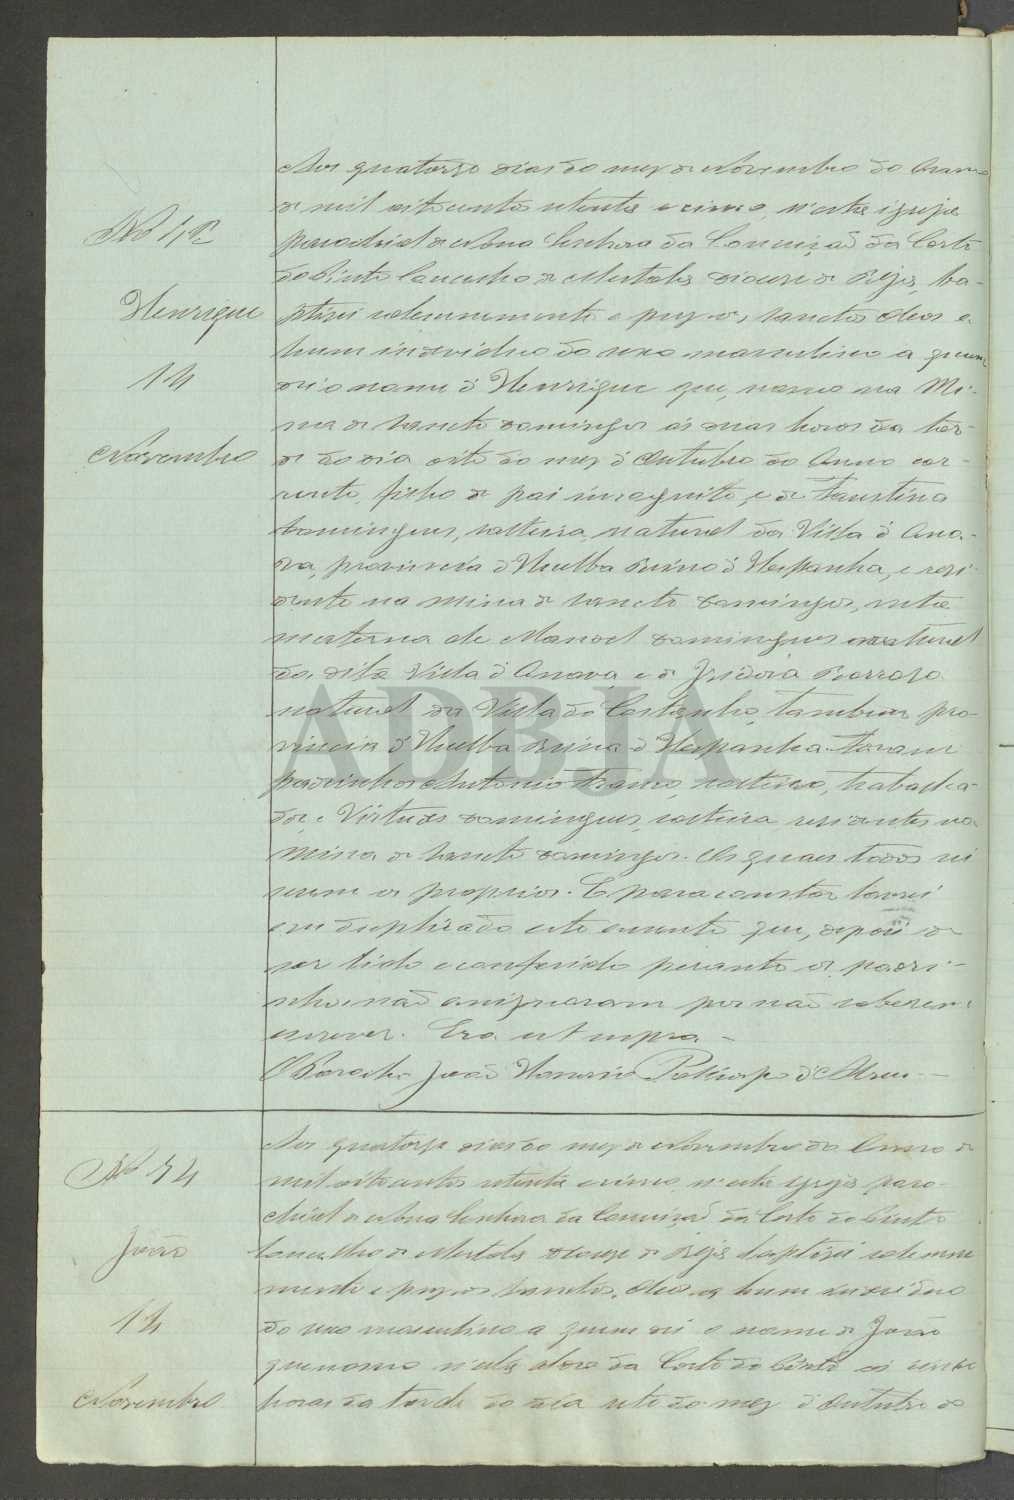 Aos quatorze dias do mez de Novembro do Anno
de mil oitocentos setenta e cinco, n'esta igreja
parochial de Nossa Senhora da Conceição da Corte
do Pinto Concelho de Mertola diocese de Beja, ba-
ptisei solemnemente e puz os Sanctos Oleos a
hum individuo do sexo masculino a quem
dei o nome d'Henrique que, nasceo na Mi-
na de Sancto Domingos ás duas horas da tar-
de do dia oito do mez d'Outubro do Anno cor-
rente, filho de pai incognito, e de Faustina
Domingues, solteira, natural da Villa d'
provincia d'Huelba Reino d'Hespanha, e resi-
dente na Mina de Sancto Domingos, neto
materno de Manoel Domingues natural
da dita Villa d' e de Izidora Barroso
natural da Villa do Castigulho, tambem pro-
vincia d'Huelba Reino d'Hespanha. Foram
padrinhos Antonio Franco, solteiro, trabalha-
dor, e Virtudes Domingues, solteira, residentes na
Mina de Sancto Domingos. Os quaes todos
serem os proprios. E para constar lavrei
em duplicado este assento que, depois de
ser lido e conferido perante os padri-
nhos não assignaram por não saberem
escrever. Era ut supra -
O Parocho João d'Abreu
Nº
Henrique
14
Novembro
Aos quatorze dias do mez de Novembro do Anno de
mil oitocentos setenta e cinco, n'esta igreja paro-
chial de Nossa Senhora da Conceição da Corte do Pinto
Concelho de Mertola diocese de Beja baptisei solemne
mente e puz os Sanctos Oleos a hum individuo
do sexo masculino a quem dei o nome de João
que nasceo n'esta Aldea da Corte do Pinto ás
horas da tarde do dia sete do mez d'Outubro do
Nº 74
João
14
Novembro
ADBJA